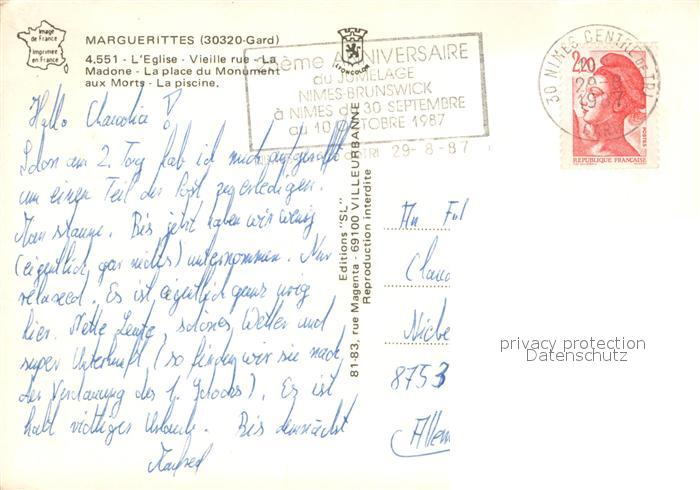 Image
de France
Imprimée
en France
MARGUERITTES (30320-Gard)
4.551 - L'Eglise - Vieille rue - La
Madone - La place du Monument
aux Morts - La piscine.
LYONCOLOR
ème ANNIVERSAIRE
du JUMELAGE
NIMES-BRUNSWICK
à NIMES du 30 SEPTEMBRE
au 10 OCTOBRE 1987
TRI 29-8-87
30 NIMES CENTRE DE TRI
1987
2,20
POSTES
REPUBLIQUE FRANÇAISE
Hallo Claudia!
Schon am 2. Tag hab ich mich aufgerafft
um einen Teil der Post zu erledigen.
Man staune. Bis jetzt haben wir wenig
(eigentlich gar nichts) unternommen. Nur
relaxed. Es ist eigentlich ganz urig
hier. Nette Leute, schönes Wetter und
super Unterkunft (so finden wir sie nach
der Verdauung des 1. Schocks). Es ist
halt richtiger Urlaub. Bis demnächst
Manfred
Editions "SL"
81-83, rue Magenta - 69100 VILLEURBANNE
Reproduction interdite
An
Clau
8753
Allem
privacy protection
Datenschutz